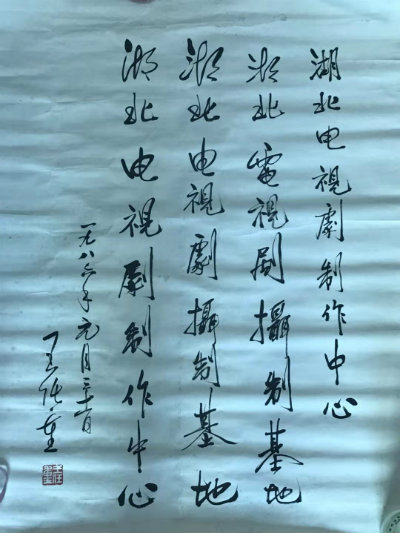 湖北电視劇制作中心
湖北電視剧攝制基地
湖北电視劇攝制基地
湖北电視劇制作中心
一九八六年元月
王任重